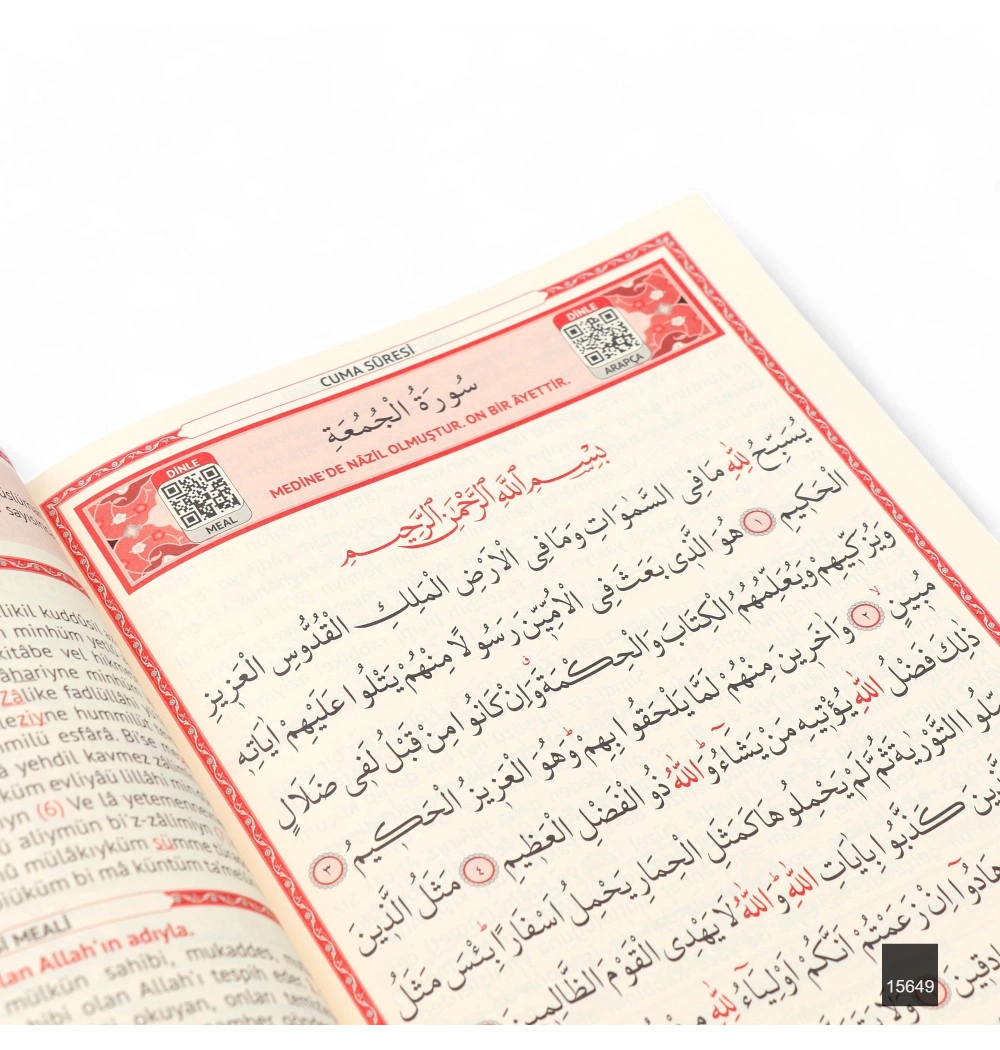 CUMA SÛRESİ
DİNLE
ARAPÇA
سُورَةُ الْجُمُعَةِ
MEDİNE'DE NÂZİL OLMUŞTUR. ON BİR ÂYETTİR.
DİNLE
MEAL
بِسْمِ اللّٰهِ الرَّحْمٰنِ الرَّحِيمِ
يُسَبِّحُ لِلّٰهِ مَا فِى السَّمٰوَاتِ وَمَا فِى الْاَرْضِ الْمَلِكِ الْقُدُّوسِ الْعَزِيزِ
الْحَكِيمِ ١ هُوَ الَّذٖى بَعَثَ فِى الْاُمِّيّٖنَ رَسُولًا مِنْهُمْ يَتْلُوا عَلَيْهِمْ اٰيَاتِهٖ
وَيُزَكّٖيهِمْ وَيُعَلِّمُهُمُ الْكِتَابَ وَالْحِكْمَةَ وَاِنْ كَانُوا مِنْ قَبْلُ لَفٖى ضَلَالٍ
مُبٖينٍ ٢ وَاٰخَرٖينَ مِنْهُمْ لَمَّا يَلْحَقُوا بِهِمْ وَهُوَ الْعَزٖيزُ الْحَكٖيمُ ٣
ذٰلِكَ فَضْلُ اللّٰهِ يُؤْتٖيهِ مَنْ يَشَٓاءُ وَاللّٰهُ ذُو الْفَضْلِ الْعَظٖيمِ ٤ مَثَلُ الَّذٖينَ
التَّوْرٰيةَ ثُمَّ لَمْ يَحْمِلُوهَا كَمَثَلِ الْحِمَارِ يَحْمِلُ اَسْفَارًا بِئْسَ مَثَلُ
كَذَّبُوا بِاٰيَاتِ اللّٰهِ وَاللّٰهُ لَا يَهْدِى الْقَوْمَ الظَّالِمٖينَ
هَادُٓوا اِنْ زَعَمْتُمْ اَنَّكُمْ اَوْلِيَٓاءُ لِلّٰهِ
likil kuddûsil
minhüm
kitâbe vel
minhüm
Zâlike fadlüllâhi
hummilüt
esfârâ. Bi'se
yehdil kavmez
evliyâü lillâhi
(6) Ve lâ
alîymün bi'z-zâlimiyn
mülâkıyküm sümme
bi mâ küntüm
MEALİ
Allah'ın adıyla.
sahibi, mukaddes,
mülkün
olan Allah'ı tespih
okuyan, onları
15649